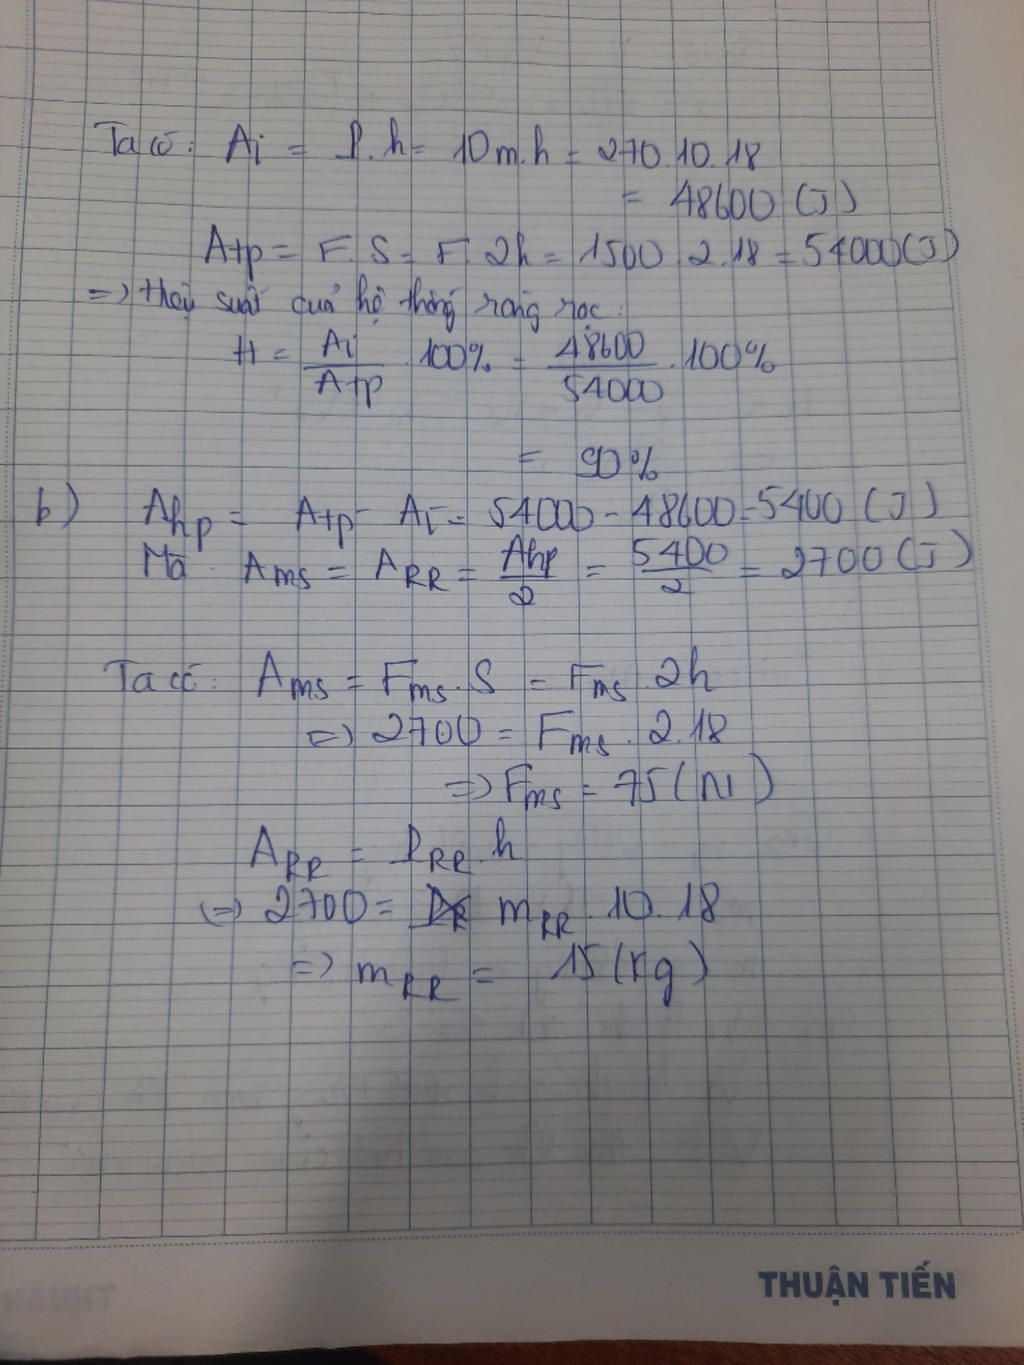 Ta có: Ai = P.h = 10m.h = 270.10.18
= 48600 (J)
Atp = F.S = F.2h = 1500.2.18 = 54000 (J)
=> Hiệu suất của hệ thống ròng rọc:
H = Ai/Atp . 100% = 48600/54000 . 100%
= 90%
b) Ahp = Atp - Ai = 54000 - 48600 = 5400 (J)
Mà Ams = ARR = Ahp/2 = 5400/2 = 2700 (J)
Ta có: Ams = Fms.S = Fms.2h
=> 2700 = Fms.2.18
=> Fms = 75 (N)
ARR = PRR.h
<=> 2700 = mRR.10.18
=> mRR = 15 (kg)
THUẬN TIẾN